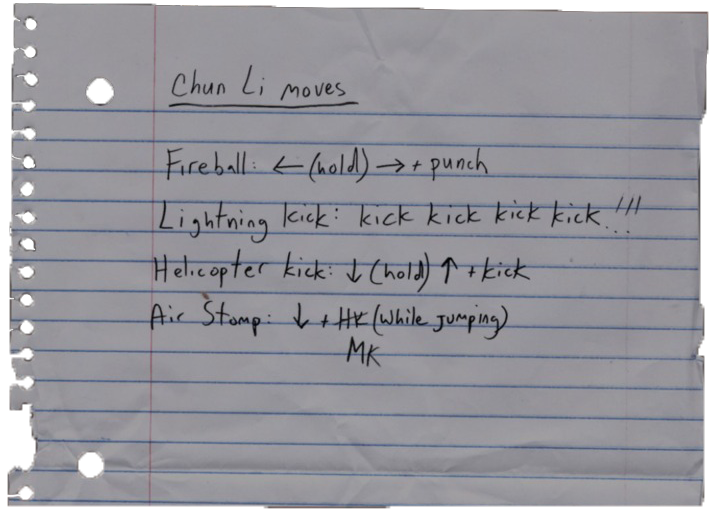 Chun Li moves
Fireball: ← (hold) → + punch
Lightning kick: kick kick kick kick...!!!
Helicopter kick: ↓ (hold) ↑ + kick
Air Stomp: ↓ + HK (while jumping)
MK